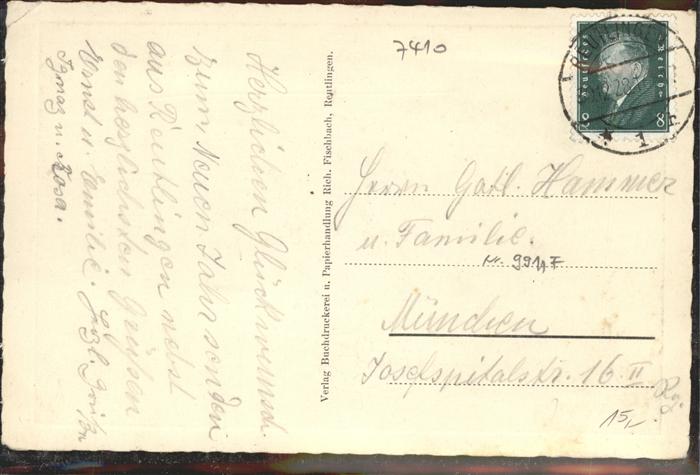 Herzlichen Glückwunsch
zum Neuen Jahr senden
aus Reutlingen nebst
den herzlichsten Grüßen
Ernst u. Emilie.
Ignaz u. Rosa.
Verlag Buchdruckerei u. Papierhandlung Rich. Fischbach, Reutlingen.
7410
REUTLINGEN
Deutsches Reich
8
1
Herrn Gotl. Hammer
u. Familie.
Nr. 9914F
München
Josefspitalstr. 16 II
15,-